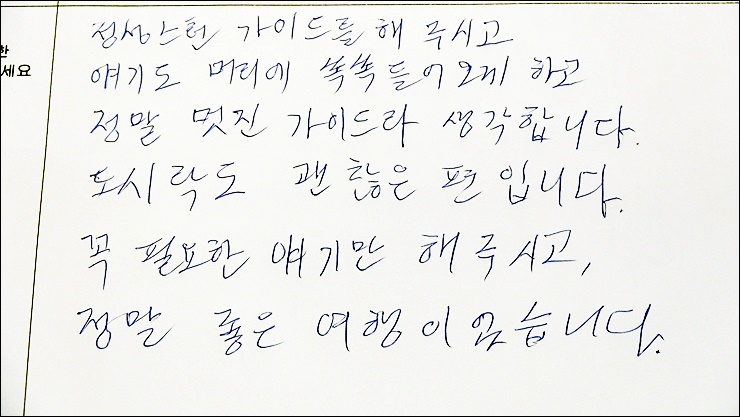 정성스런 가이드를 해 주시고
얘기도 머리에 쏙쏙 들어오게 하고
정말 멋진 가이드라 생각합니다.
도시락도 괜찮은 편입니다.
꼭 필요한 얘기만 해주시고,
정말 좋은 여행이었습니다.
한
세요